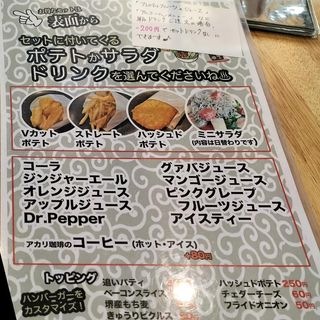 表皿から
セットに付いてくる
ポテトかサラダ
ドリンクを選んでくださいね♨
-200円でセットドリンクなし
Vカット
ポテト
ストレート
ポテト
ハッシュド
ポテト
ミニサラダ
(内容は日替わりです)
コーラ
ジンジャーエール
オレンジジュース
アップルジュース
Dr.Pepper
グァバジュース
マンゴージュース
ピンクグレープ
フルーツジュース
アイスティー
アカリ珈琲のコーヒー (ホット・アイス)
+80円
トッピング
ハンバーガーを
カスタマイズ!
追いパティ
ベーコンスライス
堺産もち麦
きゅうりピクルス
ハッシュドポテト 250円
チェダーチーズ 60円
フライドオニオン 50円